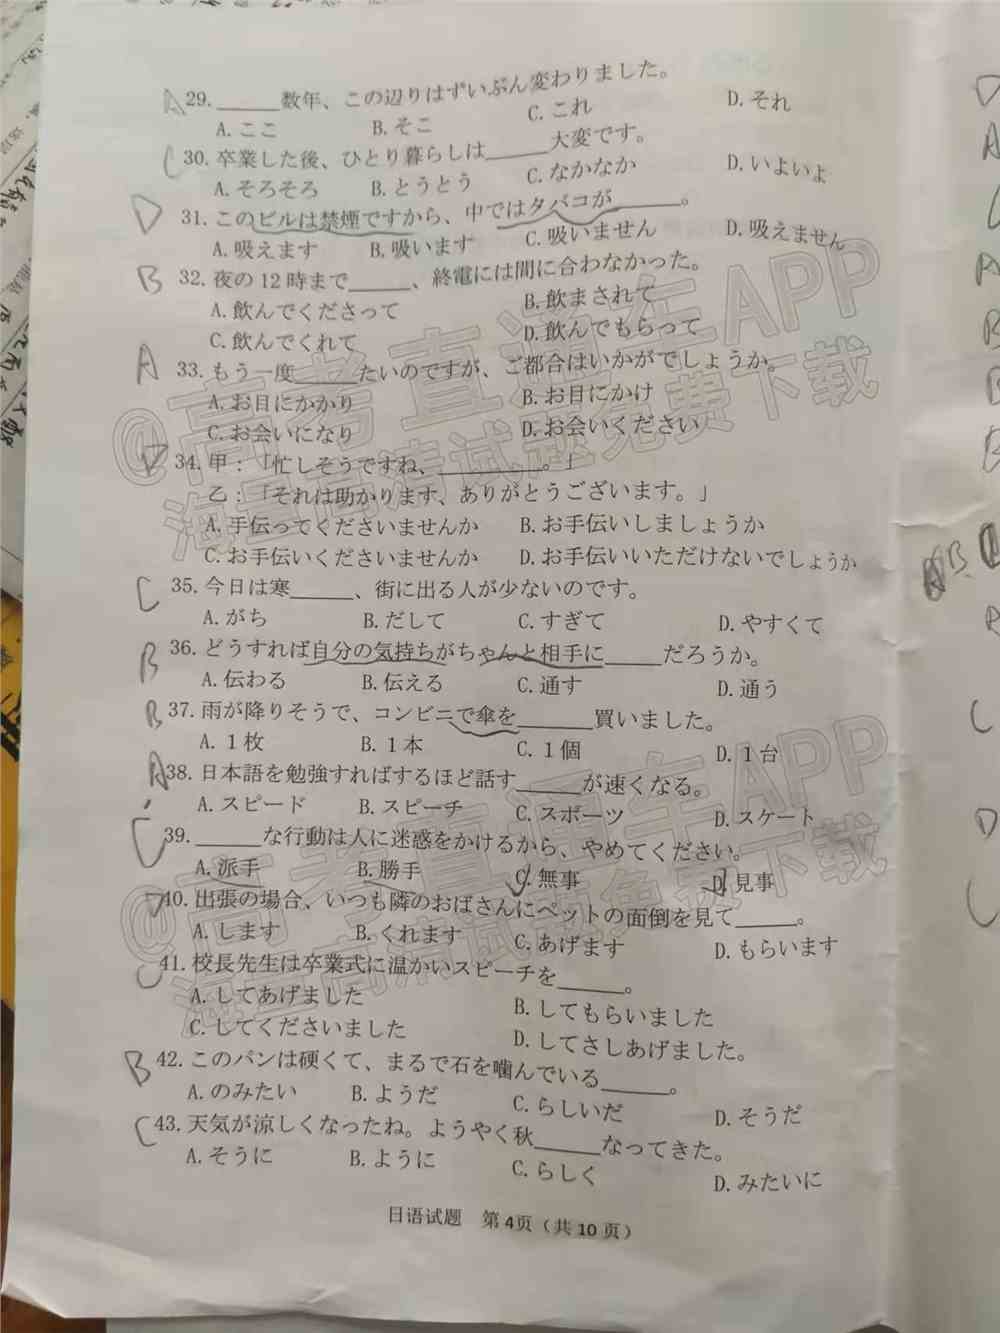 A 29. ______数年、この辺りはずいぶん変わりました。
A. ここ B. そこ C. これ D. それ
C 30. 卒業した後、ひとり暮らしは______大変です。
A. そろそろ B. とうとう C. なかなか D. いよいよ
D 31. このビルは禁煙ですから、中ではタバコが______。
A. 吸えます B. 吸います C. 吸いません D. 吸えません
B 32. 夜の12時まで______、終電には間に合わなかった。
A. 飲んでくださって B. 飲まされて
C. 飲んでくれて D. 飲んでもらって
A 33. もう一度______たいのですが、ご都合はいかがでしょうか。
A. お目にかかり B. お目にかけ
C. お会いになり D. お会いください
D 34. 甲：「忙しそうですね、__________。」
乙：「それは助かります、ありがとうございます。」
A. 手伝ってくださいませんか B. お手伝いしましょうか
C. お手伝いくださいませんか D. お手伝いいただけないでしょうか
C 35. 今日は寒______、街に出る人が少ないのです。
A. がち B. だして C. すぎて D. やすくて
B 36. どうすれば自分の気持ちがちゃんと相手に______だろうか。
A. 伝わる B. 伝える C. 通す D. 通う
B 37. 雨が降りそうで、コンビニで傘を_______買いました。
A. 1枚 B. 1本 C. 1個 D. 1台
A 38. 日本語を勉強すればするほど話す______が速くなる。
A. スピード B. スピーチ C. スポーツ D. スケート
C 39. ______な行動は人に迷惑をかけるから、やめてください。
A. 派手 B. 勝手 C. 無事 D. 見事
D 40. 出張の場合、いつも隣のおばさんにペットの面倒を見て______。
A. します B. くれます C. あげます D. もらいます
C 41. 校長先生は卒業式に温かいスピーチを______。
A. してあげました B. してもらいました
C. してくださいました D. してさしあげました。
B 42. このパンは硬くて、まるで石を噛んでいる______。
A. のみたい B. ようだ C. らしいだ D. そうだ
C 43. 天気が涼しくなったね。ようやく秋______なってきた。
A. そうに B. ように C. らしく D. みたいに
日语试题 第4页（共10页）
@高考直通车APP
海量高清试题免费下载
@高考直通车APP
海量高清试题免费下载